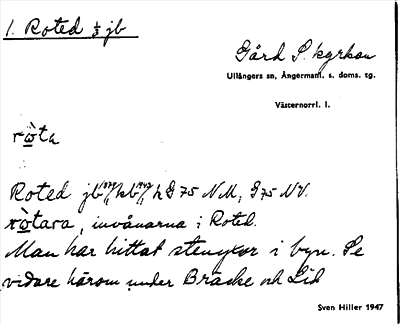 1. Roted ½ jb
Gård S. kyrkan
Ullångers sn, Ångermanl. s. doms. tg.
Västernorrl. l.
ròta
Roted jb kb h G 75 NM, G 75 NV.
ròtara, invånarna i Roted.
Man har hittat stenyxor i byn. Se
vidare härom under Bräcke och Lid
Sven Hiller 1947